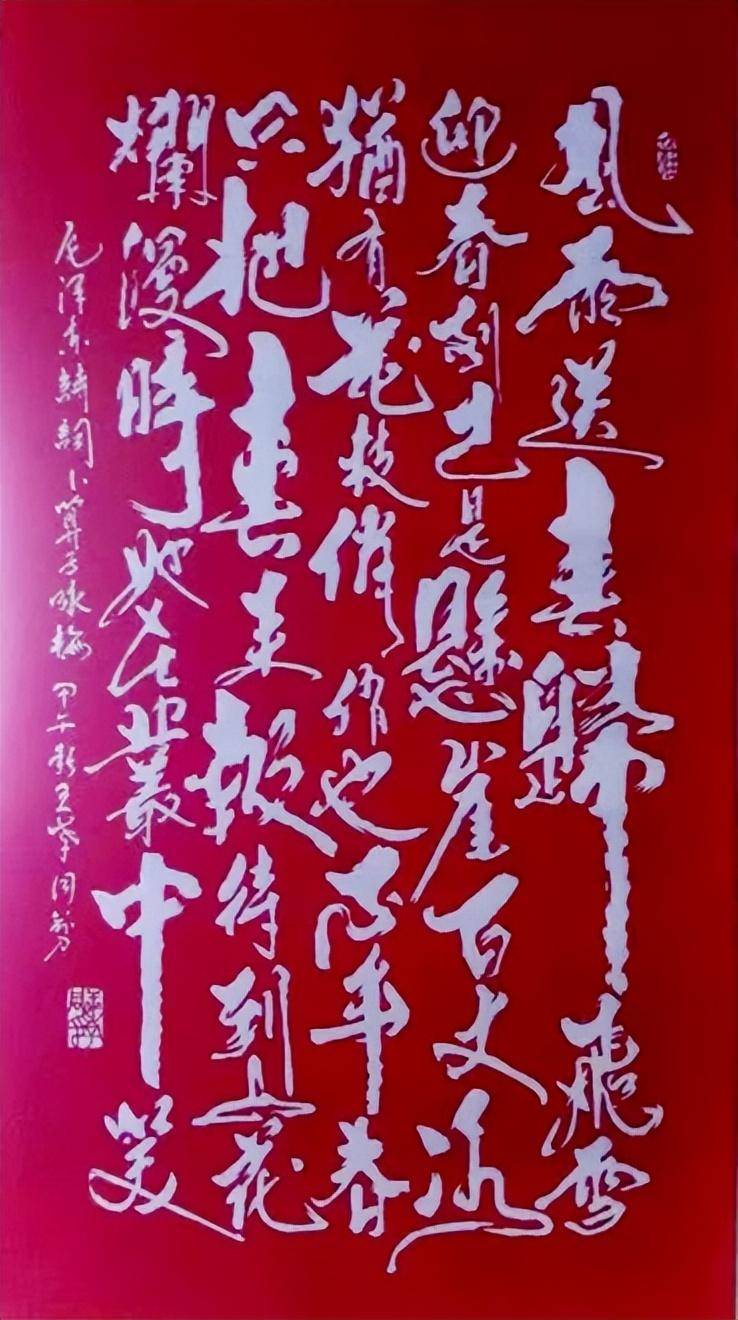 風雨送春歸飛雪
迎春到已是懸崖百丈冰
猶有花枝俏俏也不争春
只把春来報待到山花
爛漫時她在叢中笑
毛泽东詩詞卜算子咏梅 甲午